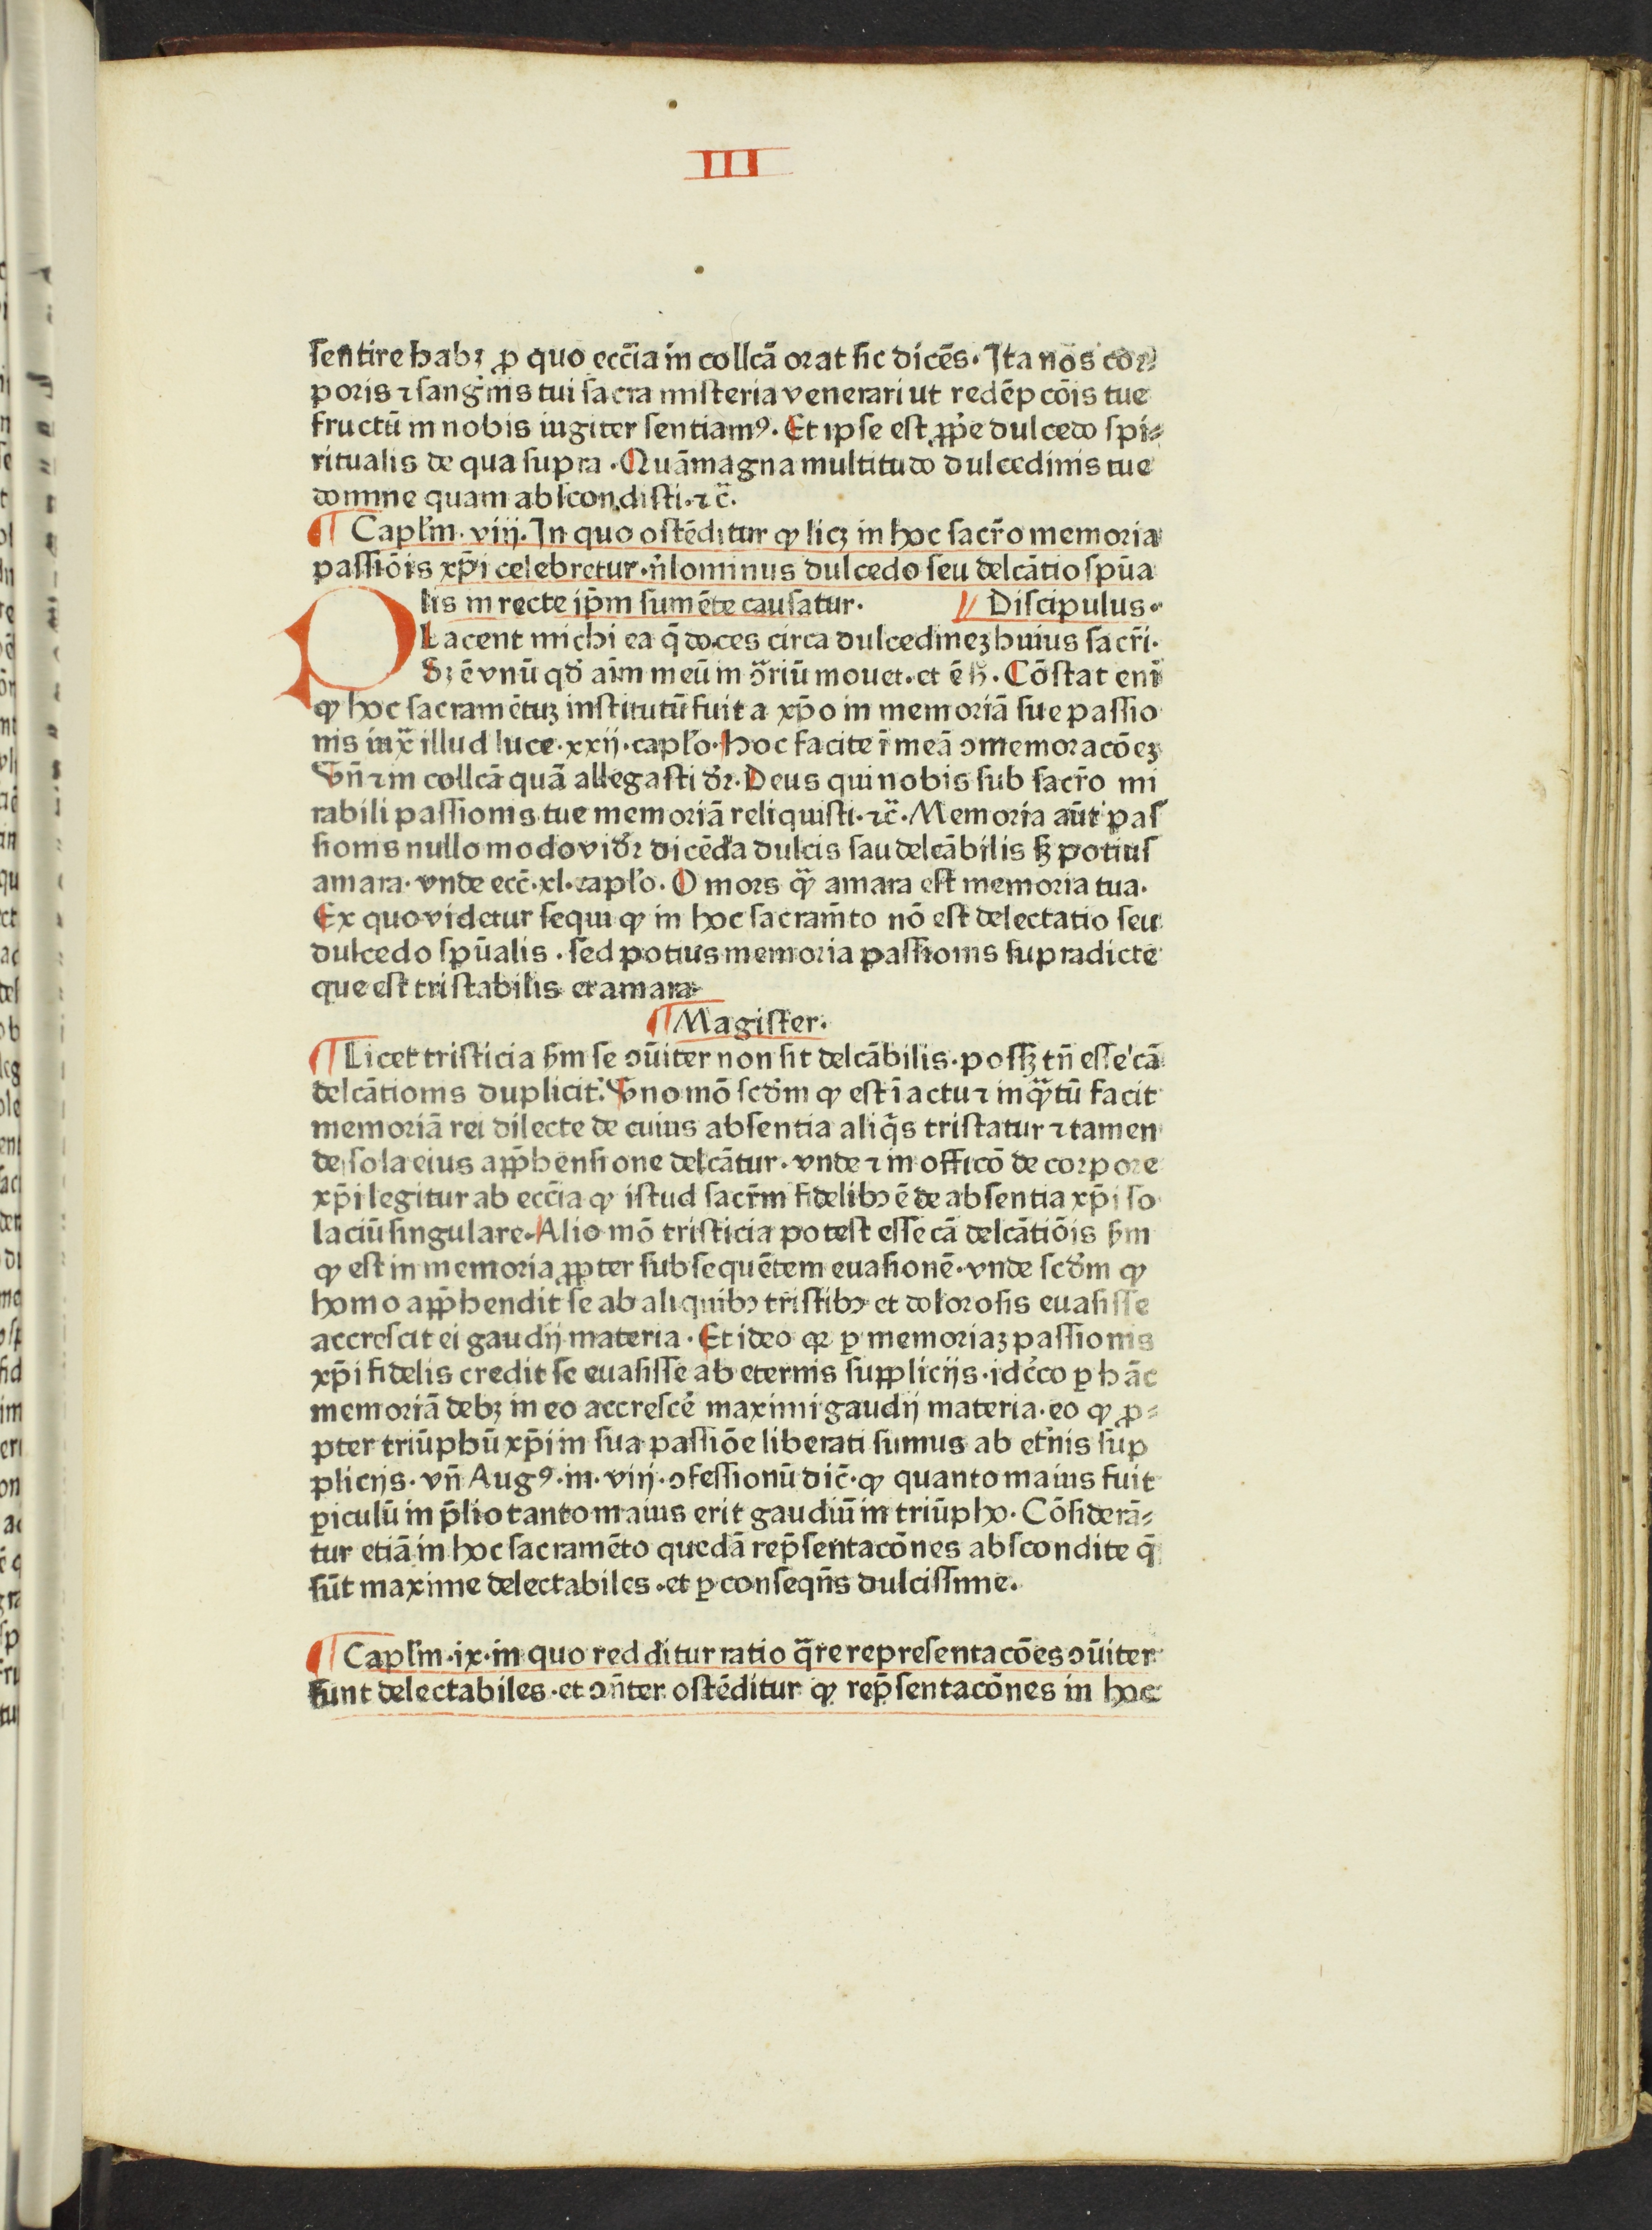 III
sentire habꝫ ꝓ quo ecc̄ia in collcā orat sic dicēs. Ita nos cor⸗
poris ⁊ sangͥnis tui sacra misteria venerari ut redēpcōis tue
fructū in nobis iugiter sentiamꝰ. Et ipse est ꝓpͥe dulcedo spi⸗
ritualis de qua supra. Quā magna multitudo dulcedinis tue
domine quam abscondisti. ⁊c̄.
¶ Capl'm. viij. In quo ostēditur ꝙ licꝫ in hoc sacr̄o memoria
passiōis xp̄i celebretur. n̓lominus dulcedo seu delcātio spūa
lis in recte ip̄m sumēte causatur. Discipulus.
Placent michi ea q̄ doces circa dulcedineꝫ huius sacr̄i.
Sꝫ ē vnū qd̓ aīm meū in ↄ̄riū mouet. et ē h̓. Cōstat enī
ꝙ hoc sacramētuꝫ institutū fuit a xp̄o in memoriā sue passio
nis iux̄ illud luce. xxij. capl'o. Hoc facite ī meā ↄmemoracōeꝫ
Vn̄ ⁊ in collcā quā allegasti d̓r. Deus qui nobis sub sacr̄o mi
rabili passionis tue memoriā reliquisti. ⁊c̄. Memoria aūt pas
sionis nullo modo vid̓r dicēda dulcis sau delcābilis sꝫ potius
amara. vnde ecc̄. xl. capl'o. O mors ꝙ̄ amara est memoria tua.
Ex quo videtur sequi ꝙ in hoc sacram̄to nō est delectatio seu
dulcedo spūalis. sed potius memoria passionis supradicte
que est tristabilis et amara.
¶ Magister.
¶ Licet tristicia sm̄ se ↄūiter non sit delcābilis. possꝫ tn̄ esse cā
delcātionis duplicit̓. Vno mō scd̓m ꝙ est ī actu ⁊ inꝙ̄tū facit
memoriā rei dilecte de cuius absentia aliqͥs tristatur ⁊ tamen
de sola eius app̄hensione delcātur. vnde ⁊ in officō de corpore
xp̄i legitur ab ecc̄ia ꝙ istud sacr̄m fidelibↄ ē de absentia xp̄i so
laciū singulare. Alio mō tristicia potest esse cā delcātiōis sm̄
ꝙ est in memoria ꝓpter subsequētem euasionē. vnde scd̓m ꝙ
homo app̄hendit se ab aliquibↄ tristibↄ et dolorosis euasisse
accrescit ei gaudij materia. Et ideo qꝛ ꝑ memoriaꝫ passionis
xp̄i fidelis credit se euasisse ab eternis supplicijs. idc̓co ꝑ hāc
memoriā debꝫ in eo accresce̓ maximi gaudij materia. eo ꝙ ꝓ⸗
pter triūphū xp̄i in sua passiōe liberati sumus ab et̓nis sup
plicijs. vn̄ Augꝰ. in. viij. ↄfessionū dic̄. ꝙ quanto maius fuit
ꝑiculū in p̄lio tanto maius erit gaudiū in triūpho. Cōsiderā⸗
tur etiā in hoc sacramēto quedā rep̄sentacōnes abscondite q̄
sūt maxime delectabiles. et ꝑ conseqn̄s dulcissime.
¶ Capl'm. ix. in quo redditur ratio q̄re representacōes ↄūiter
sunt delectabiles. et ↄn̄ter ostēditur ꝙ rep̄sentacōnes in hoc